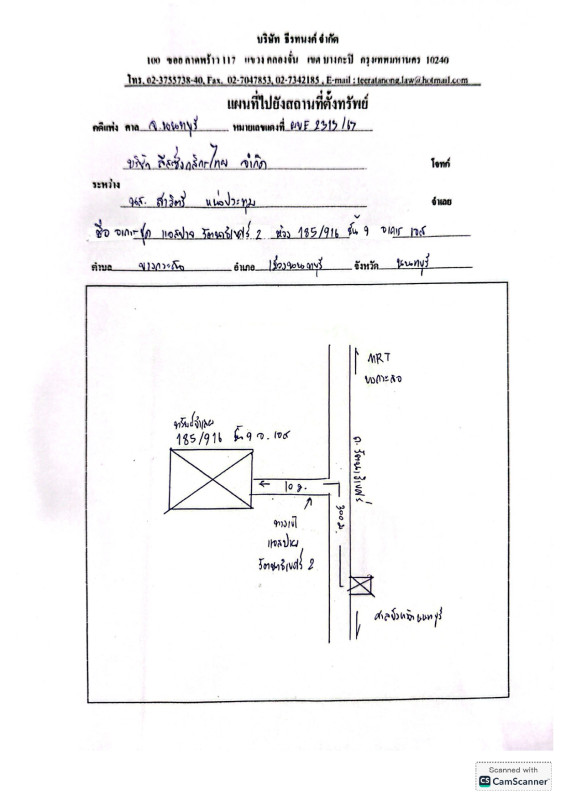 บริษัท ธีรทนงค์ จำกัด
100 ซอย ลาดพร้าว 117 แขวง คลองจั่น เขต บางกะปิ กรุงเทพมหานคร 10240
โทร. 02-3755738-40, Fax. 02-7047853, 02-7342185 , E-mail : teeratanong.law@hotmail.com
แผนที่ไปยังสถานที่ตั้งทรัพย์
คดีแพ่ง ศาล จ.นนทบุรี หมายเลขแดงที่ ผบE 2313/67
บริษัท ลีสซิ่งกสิกรไทย จำกัด โจทก์
ระหว่าง
นส. สาวิตรี จำเลย
ชื่อ อาคารชุด แอสปาย รัตนาธิเบศร์ 2 ห้อง 185/916 ชั้น 9 อาคาร เอส
ตำบล บางกระสอ อำเภอ เมืองนนทบุรี จังหวัด นนทบุรี
MRT
บางกระสอ
ทรัพย์จำเลย
185/916 ชั้น 9 อ. เอส
ถ. รัตนาธิเบศร์
← 10 ม.
300 ม.
ทางเข้า
แอสปาย
รัตนาธิเบศร์ 2
ศาลจังหวัดนนทบุรี
Scanned with
CS CamScanner